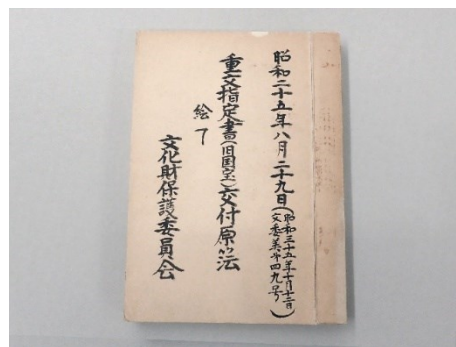 昭和二十五年八月二十九日(昭和三十五年十月十二日
文委美才四九号)
重文指定書(旧国宝)交付原簿
絵 了
文化財保護委員会